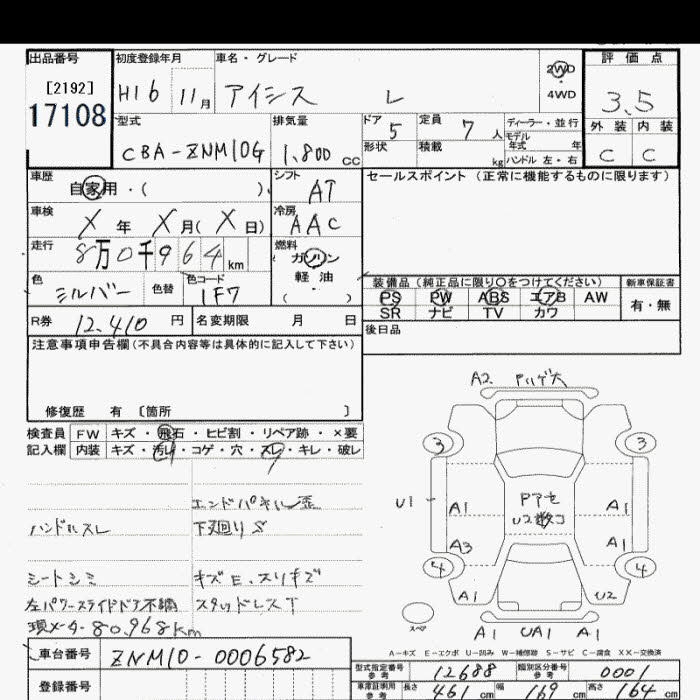 出品番号 初度登録年月 車名・グレード 評価点
[2192] H16 11月 アイシス L 2WD 4WD 3.5
17108
型式 排気量 ドア 5 定員 7人 ディーラー・並行 外装 内装
CBA-ZNM10G 1,800cc 形状 積載 kg モデル年式 年 ハンドル 左・右 C C
車歴 自家用・( ) シフト AT セールスポイント (正常に機能するものに限ります)
車検 X年 X月(X日) 冷房 AAC
走行 8万0千964km 燃料 ガソリン 軽油 ( )
色 シルバー 色替 色コード 1F7
装備品 (純正品に限り○をつけてください) 新車保証書
PS PW ABS エアB AW 有・無
SR ナビ TV カワ
R券 12,410円 名変期限 月 日 後日品
注意事項申告欄(不具合内容等は具体的に記入して下さい)
修復歴 有 〔箇所 〕
検査員 FW キズ・飛石・ヒビ割・リペア跡・×要
記入欄 内装 キズ・汚レ・コゲ・穴・スレ・キレ・破レ
ハンドルスレ
シートシミ
左パワースライドドア不
現メーター80,968km
下廻りS
キズE、スリキズ
スタッドレスT
A2
3 3
U1 A1 A1
A3 A1
4 4
A1 U2
A1 UA1 A1
スペア
A-キズ E-エクボ U-凹み W-補修跡 S-サビ C-腐食 XX-交換済
車台番号 ZNM10-0006582
登録番号
型式指定番号 参考 12688 類別区分番号 参考 0001
車庫証明用 参考 長さ 461cm 幅 169cm 高さ 164cm